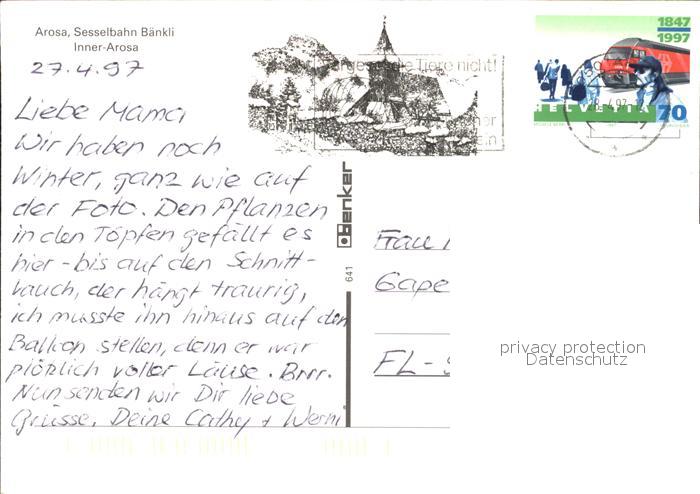 Arosa, Sesselbahn Bänkli
Inner-Arosa
27.4.97
Liebe Mama
Wir haben noch
Winter, ganz wie auf
der Foto. Den Pflanzen
in den Töpfen gefällt es
hier - bis auf den Schnitt-
lauch, der hängt traurig,
ich musste ihn hinaus auf den
Balkon stellen, denn er war
plötzlich voller Läuse. Brrr.
Nun senden wir Dir liebe
Grüsse, Deine Cathy + Werni
die Tiere nicht!
1847
1997
HELVETIA 70
benker
641
Frau
Gape
FL-
privacy protection
Datenschutz